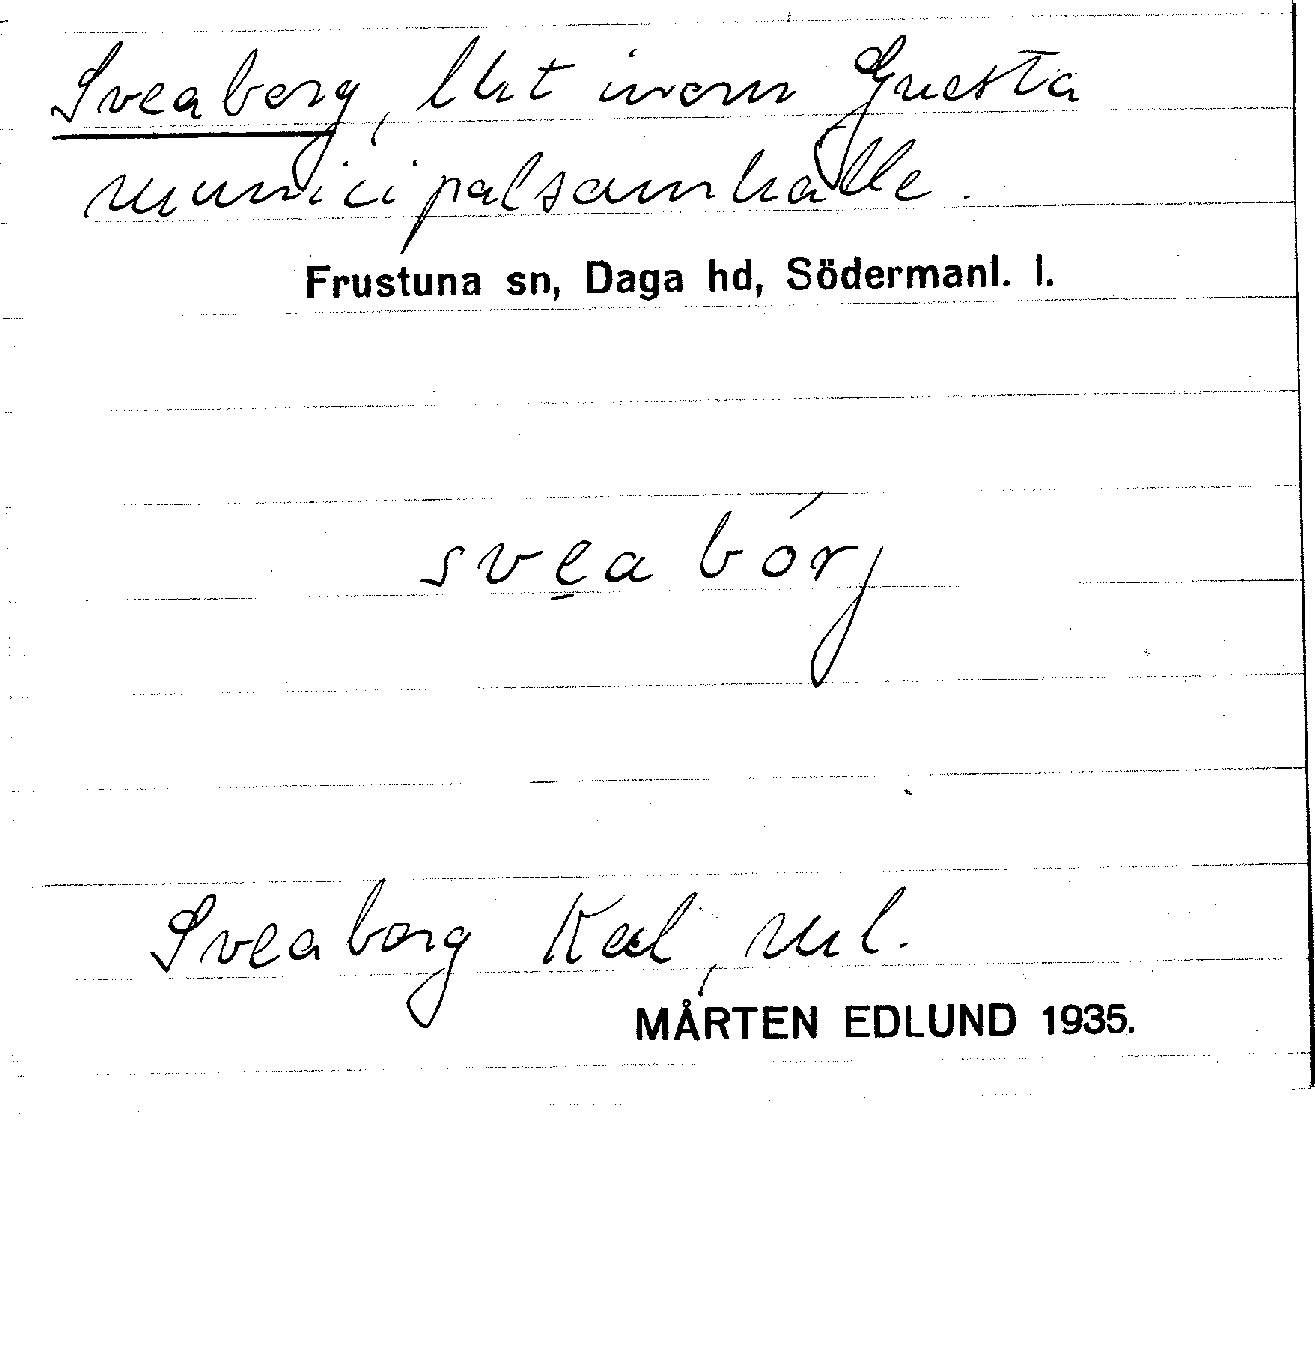 Sveaborg, lht inom Gnesta
municipalsamhälle.
Frustuna sn, Daga hd, Södermanl. l.
svea bórj
Sveaborg Kal, ml.
MÅRTEN EDLUND 1935.